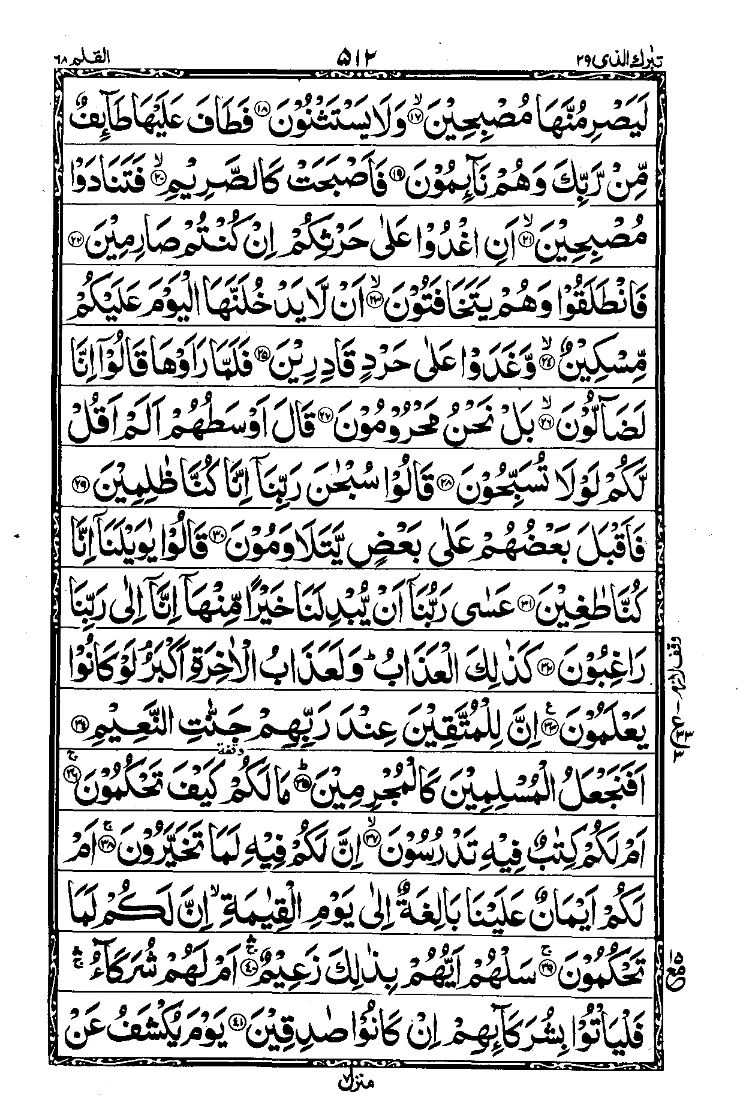 تبٰرك الذی ٢٩ ٥١٢ القلم ٦٨
لَيَصْرِمُنَّهَا مُصْبِحِيْنَ ۙ‏﴿١٧﴾ وَلَا يَسْتَثْنُوْنَ ﴿١٨﴾ فَطَافَ عَلَيْهَا طَآئِفٌ
مِّنْ رَّبِّكَ وَهُمْ نَآئِمُوْنَ ﴿١٩﴾ فَاَصْبَحَتْ كَالصَّرِيْمِ ۙ‏﴿٢٠﴾ فَتَنَادَوْا
مُصْبِحِيْنَ ۙ‏﴿٢١﴾ اَنِ اغْدُوْا عَلٰى حَرْثِكُمْ اِنْ كُنْتُمْ صَارِمِيْنَ ﴿٢٢﴾
فَانْطَلَقُوْا وَهُمْ يَتَخَافَتُوْنَ ۙ‏﴿٢٣﴾ اَنْ لَّا يَدْخُلَنَّهَا الْيَوْمَ عَلَيْكُمْ
مِّسْكِيْنٌ ۙ‏﴿٢٤﴾ وَّغَدَوْا عَلٰى حَرْدٍ قَادِرِيْنَ ﴿٢٥﴾ فَلَمَّا رَاَوْهَا قَالُوْٓا اِنَّا
لَضَآلُّوْنَ ۙ‏﴿٢٦﴾ بَلْ نَحْنُ مَحْرُوْمُوْنَ ﴿٢٧﴾ قَالَ اَوْسَطُهُمْ اَلَمْ اَقُلْ
لَّكُمْ لَوْلَا تُسَبِّحُوْنَ ﴿٢٨﴾ قَالُوْا سُبْحٰنَ رَبِّنَآ اِنَّا كُنَّا ظٰلِمِيْنَ ﴿٢٩﴾
فَاَقْبَلَ بَعْضُهُمْ عَلٰى بَعْضٍ يَّتَلَاوَمُوْنَ ﴿٣٠﴾ قَالُوْا يٰوَيْلَنَآ اِنَّا
كُنَّا طٰغِيْنَ ﴿٣١﴾ عَسٰى رَبُّنَآ اَنْ يُّبْدِلَنَا خَيْرًا مِّنْهَآ اِنَّآ اِلٰى رَبِّنَا
رَاغِبُوْنَ ﴿٣٢﴾ كَذٰلِكَ الْعَذَابُ ؕ وَلَعَذَابُ الْاٰخِرَةِ اَكْبَرُ لَوْ كَانُوْا
يَعْلَمُوْنَ ﴿٣٣﴾ اِنَّ لِلْمُتَّقِيْنَ عِنْدَ رَبِّهِمْ جَنّٰتِ النَّعِيْمِ ﴿٣٤﴾
اَفَنَجْعَلُ الْمُسْلِمِيْنَ كَالْمُجْرِمِيْنَ ؕ‏﴿٣٥﴾ مَا لَكُمْ وقفة كَيْفَ تَحْكُمُوْنَ ۚ‏﴿٣٦﴾
اَمْ لَكُمْ كِتٰبٌ فِيْهِ تَدْرُسُوْنَ ۙ‏﴿٣٧﴾ اِنَّ لَكُمْ فِيْهِ لَمَا تَخَيَّرُوْنَ ۚ‏﴿٣٨﴾ اَمْ
لَكُمْ اَيْمَانٌ عَلَيْنَا بَالِغَةٌ اِلٰى يَوْمِ الْقِيٰمَةِ ۙ اِنَّ لَكُمْ لَمَا
تَحْكُمُوْنَ ۚ‏﴿٣٩﴾ سَلْهُمْ اَيُّهُمْ بِذٰلِكَ زَعِيْمٌ ۛۚ‏﴿٤٠﴾ اَمْ لَهُمْ شُرَكَآءُ ۛۚ
فَلْيَاْتُوْا بِشُرَكَآئِهِمْ اِنْ كَانُوْا صٰدِقِيْنَ ﴿٤١﴾ يَوْمَ يُكْشَفُ عَنْ
منزل ٧